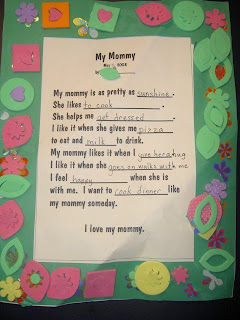 My Mommy
My mommy is as pretty as sunshine.
She likes to cook.
She helps me get dressed.
I like it when she gives me pizza
to eat and milk to drink.
My mommy likes it when I give her a hug
I like it when she goes on walks with me
I feel happy when she is
with me. I want to cook dinner like
my mommy someday.
I love my mommy.